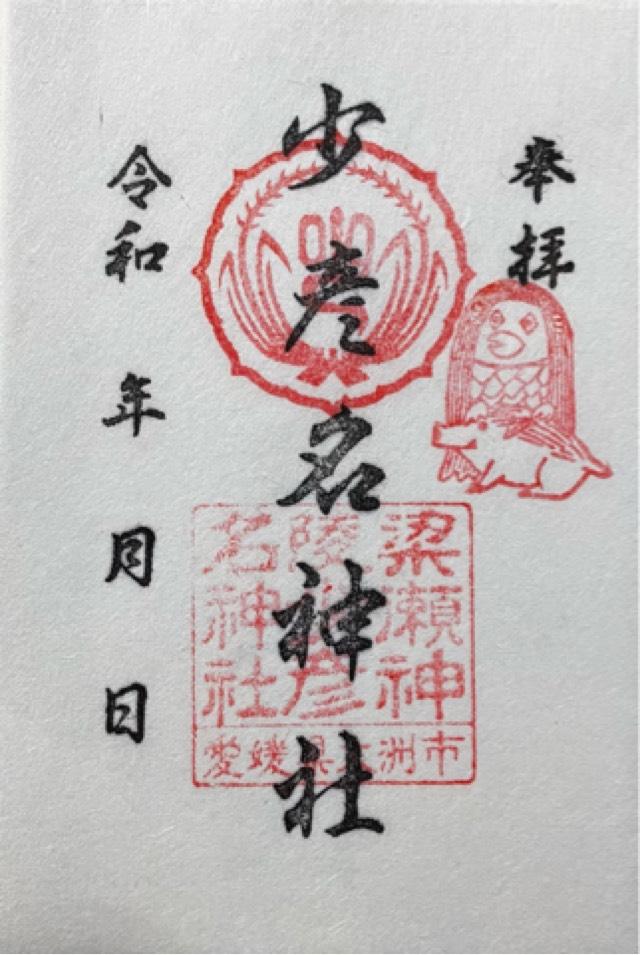 奉拝
少彦名神社
梁瀬神
陵 彦
名神社
愛媛県 洲市
令和 年 月 日